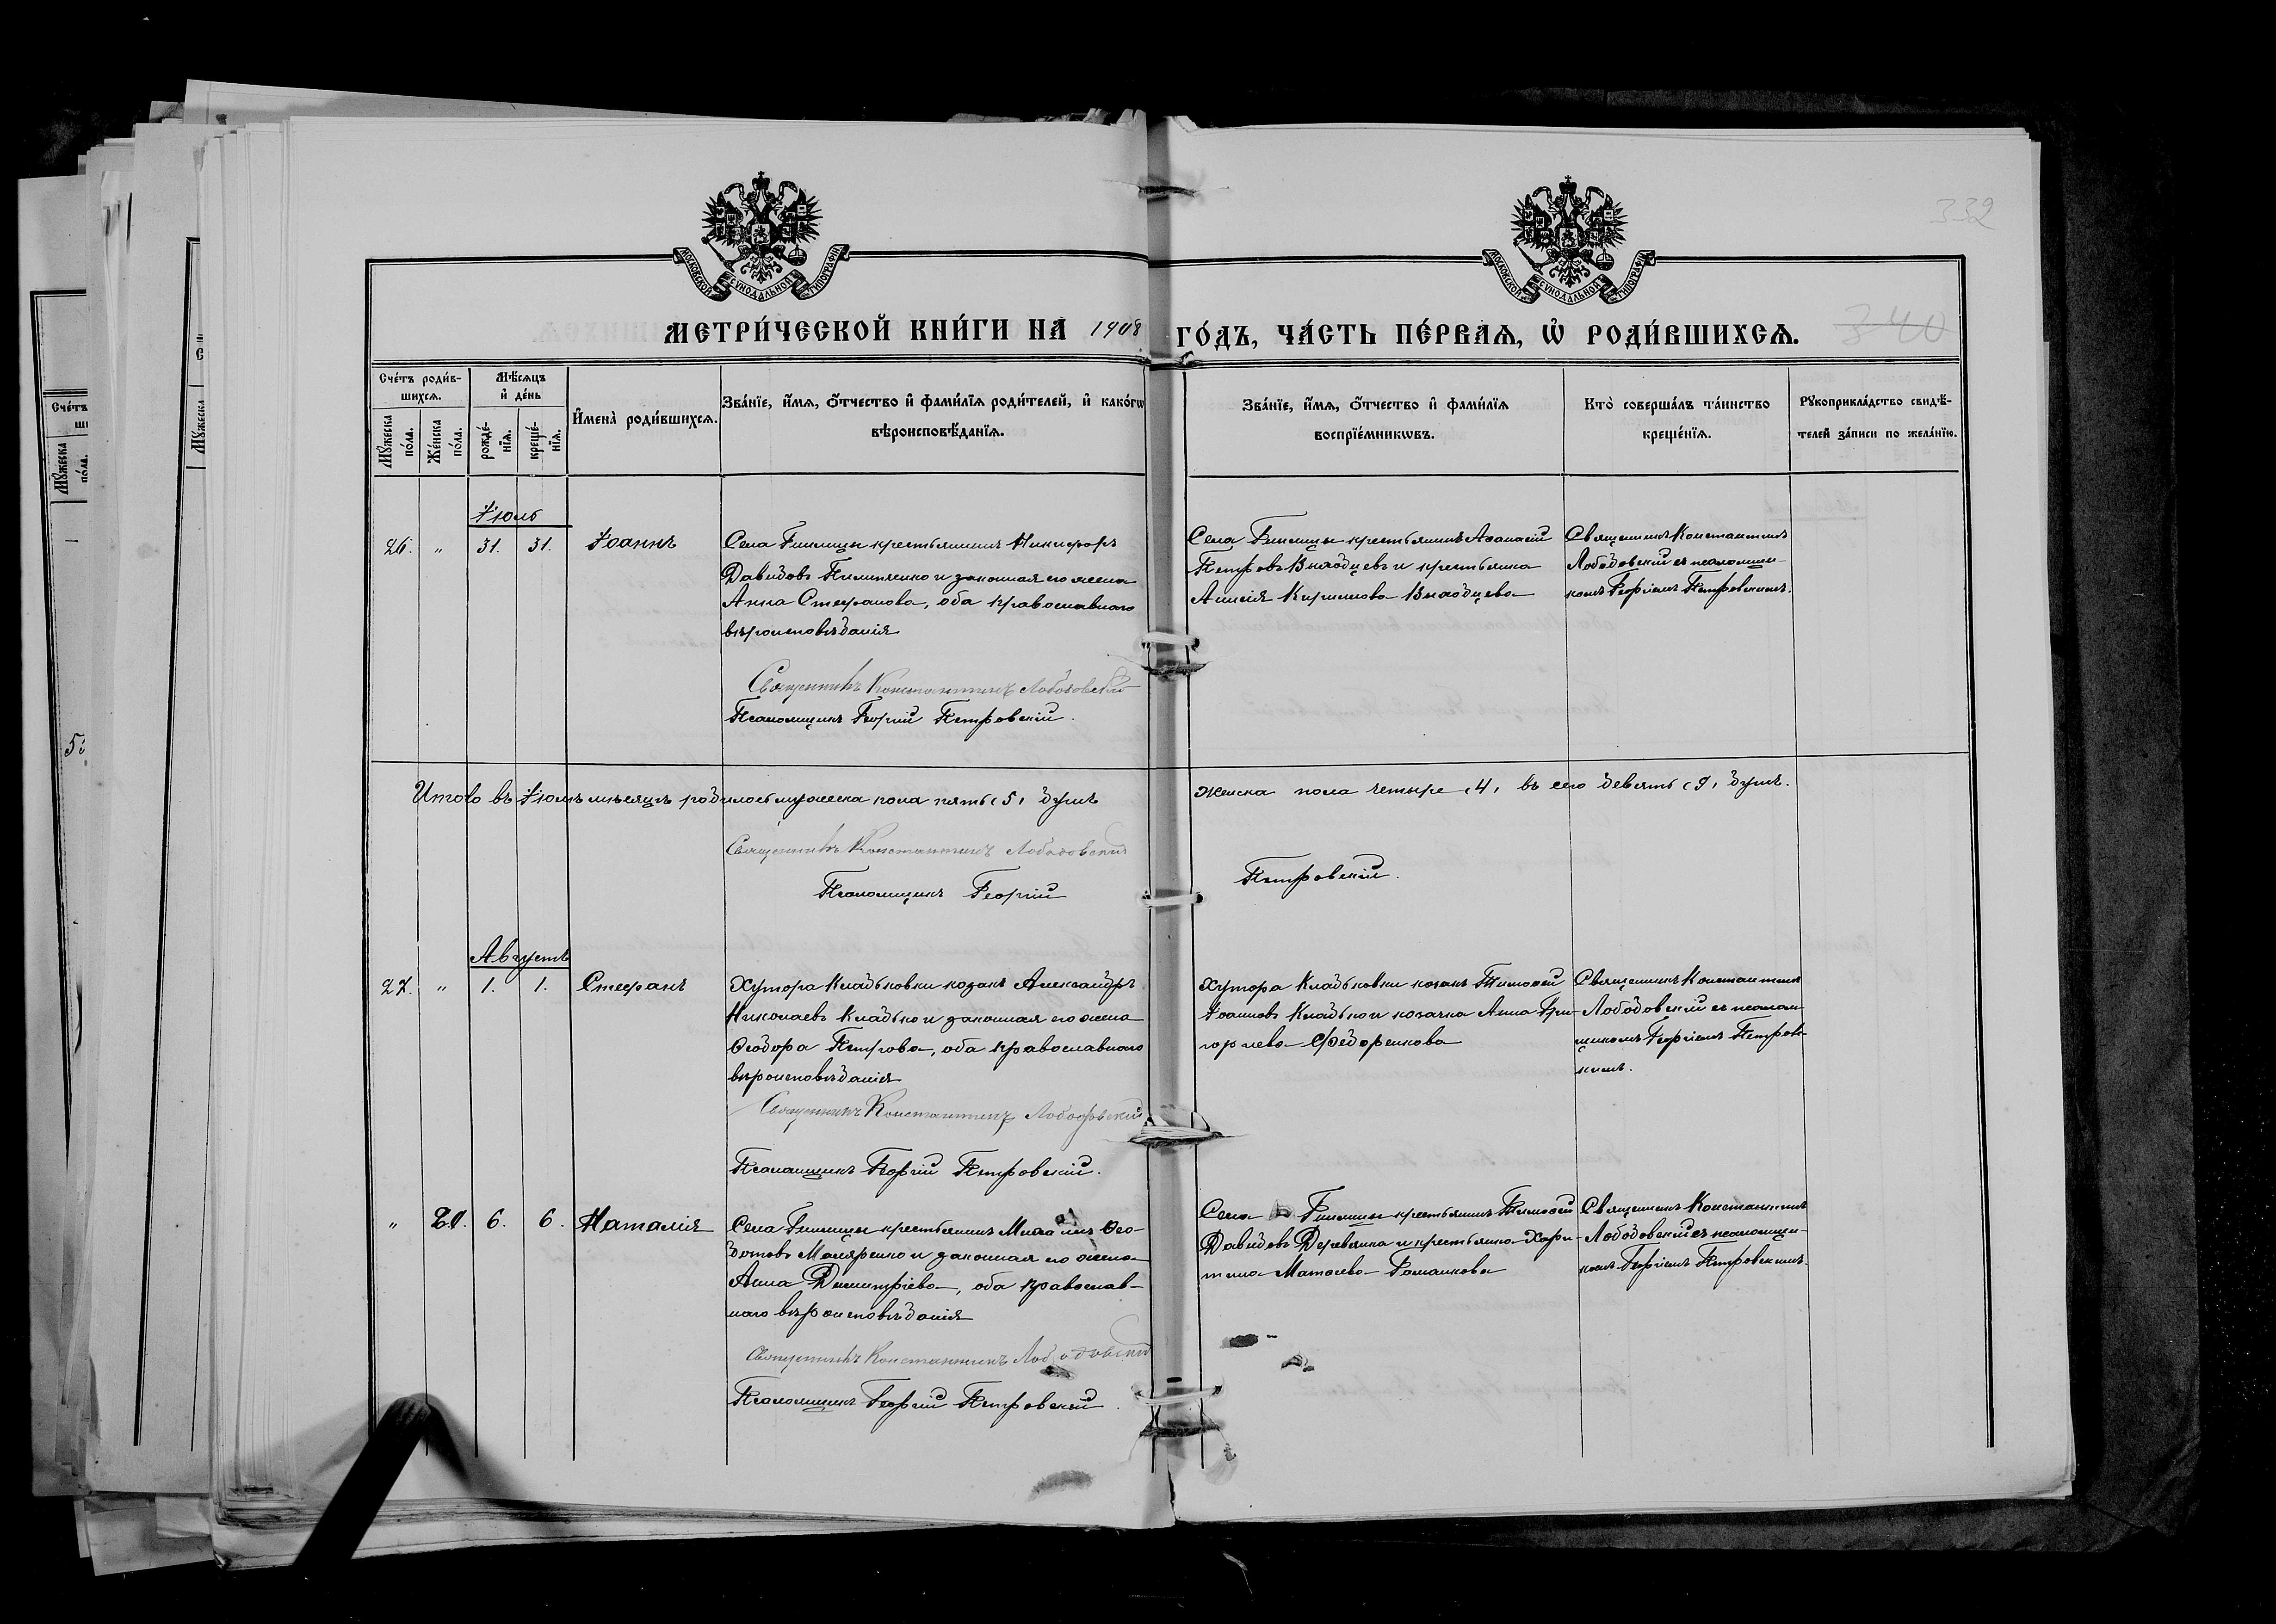 МОСКОВСКОЙ СѴНОДАЛЬНОЙ ТИПОГРАФІИ
МОСКОВСКОЙ СѴНОДАЛЬНОЙ ТИПОГРАФІИ
332
МЕТРИ́ЧЕСКОЙ КНИ́ГИ НА 1908 ГО́ДЪ, ЧА́СТЬ ПЕ́РВАѦ, Ѡ҆ РОДИ́ВШИХСѦ.
340
Сче́тъ роди́в-
шихсѧ.
Мѣ́сѧцъ
и҆ де́нь
Мꙋ́жеска по́ла.
Же́нска по́ла.
рожде́-
нїѧ.
креще́-
нїѧ.
И҆мена̀ роди́вшихсѧ.
Зва́нїе, и҆́мѧ, ѻ҆́тчество и҆ фами́лїѧ роди́телей, и҆ како́гѡ
вѣроисповѣ́данїѧ.
Зва́нїе, и҆́мѧ, ѻ҆́тчество и҆ фами́лїѧ
воспрїе́мникѡвъ.
Кто̀ соверша́лъ та́инство
креще́нїѧ.
Рꙋкоприкла́дство свидѣ́-
телей за́писи по жела́нїю.
Іюль
26. " 31. 31. Іоаннъ
Села крестьянинъ Никифоръ
Давидовъ и законная его жена
Анна Стефанова, оба православнаго
вѣроисповѣданія
Священникъ Константинъ Лободовскій
Псаломщикъ Георгій Петровскій.
Села крестьянинъ Аѳанасій
Петровъ и крестьянка
Священникъ Константинъ
Лободовскій съ псаломщи-
комъ Георгіемъ Петровскимъ.
Итого въ Іюлѣ мѣсяцѣ родилось мужеска пола пять (5) душъ
женска пола четыре (4) въ его девять (9) душъ.
Священникъ Константинъ Лободовскій
Псаломщикъ Георгій Петровскій.
Августъ
27. " 1. 1. Стефанъ
Хутора Кладьковки козакъ Александръ
Николаевъ Кладько и законная его жена
Ѳеодора Петрова, оба православнаго
вѣроисповѣданія
Священникъ Константинъ Лободовскій
Псаломщикъ Георгій Петровскій.
Хутора Кладьковки козакъ Тимоѳей
Іоанновъ Кладько и козачка Анна Гри-
горіева Федоренкова
Священникъ Константинъ
Лободовскій съ псалом-
щикомъ Георгіемъ Петровс-
кимъ.
" 6. 6. Наталія
Села крестьянинъ Михаилъ Ѳео-
дотовъ Маляренко и законная его жена
Анна Димитріева, оба православ-
наго вѣроисповѣданія
Священникъ Константинъ Лободовскій
Псаломщикъ Георгій Петровскій.
Села крестьянинъ Тимоѳей
Давидовъ Деревянка и крестьянка Хари-
тина Матѳеева Романкова
Священникъ Константинъ
Лободовскій съ псаломщи-
комъ Георгіемъ Петровскимъ.